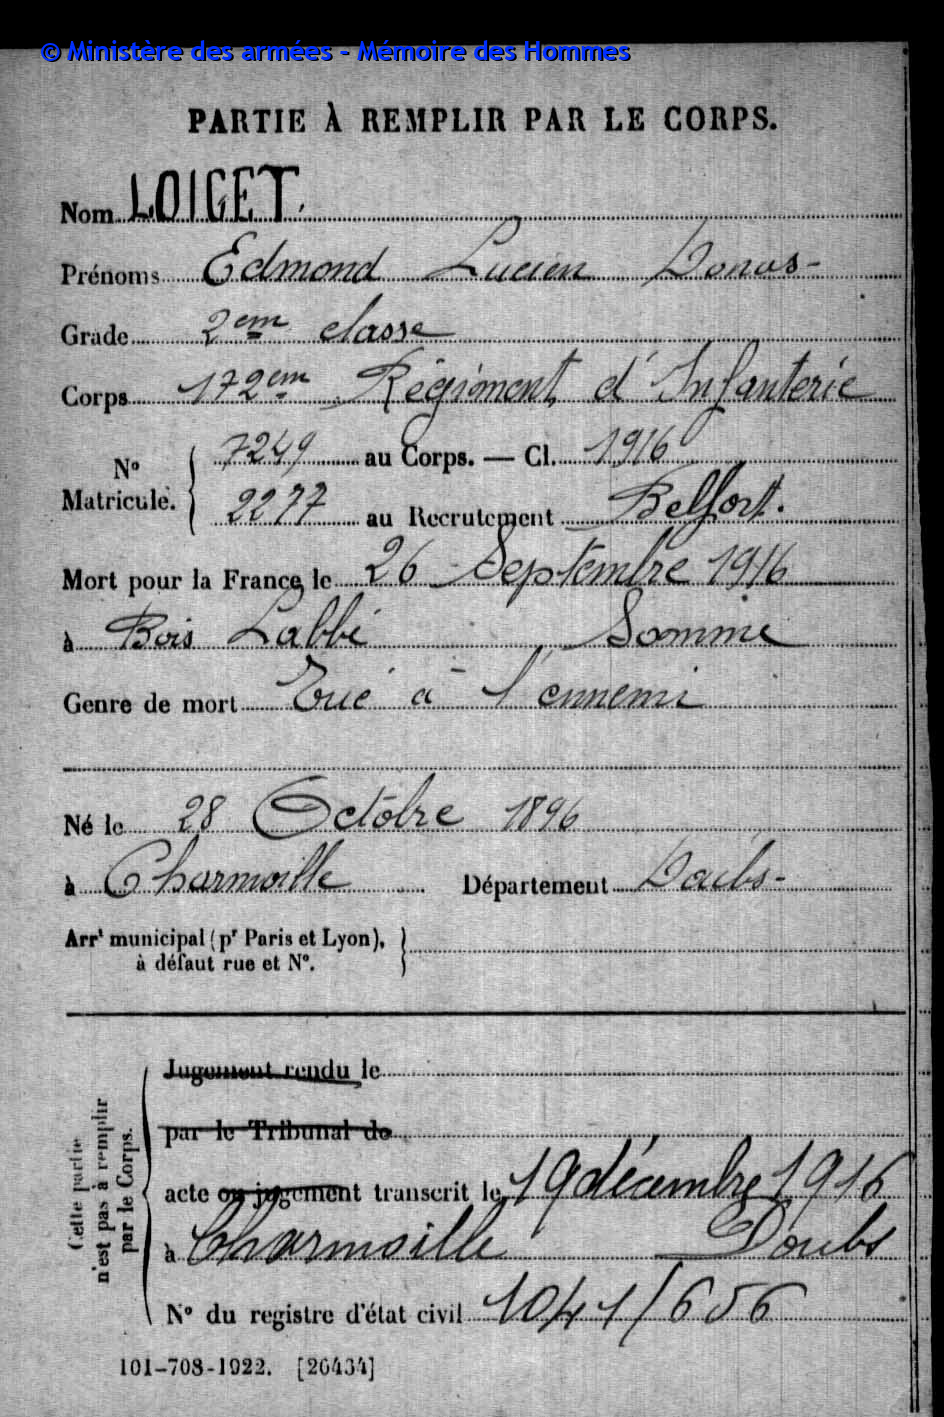 © Ministère des armées - Mémoire des Hommes
PARTIE À REMPLIR PAR LE CORPS.
Nom LOIGET.
Prénoms Edmond Lucien Donas-
Grade 2em classe
Corps 172em Régiment d'Infanterie
N° Matricule. 7249 au Corps. — Cl. 1916
2277 au Recrutement Belfort.
Mort pour la France le 26 Septembre 1916
à Bois Labbé Somme
Genre de mort Tué à l'ennemi
Né le 28 Octobre 1896
à Charmoille Département Doubs-
Arrt municipal (pr Paris et Lyon),
à défaut rue et N°.
Cette partie
n'est pas à remplir
par le Corps.
Jugement rendu le
par le Tribunal de
acte ou jugement transcrit le 19 décembre 1916
à Charmoille Doubs
N° du registre d'état civil 1041/656
101-708-1922. [26434]